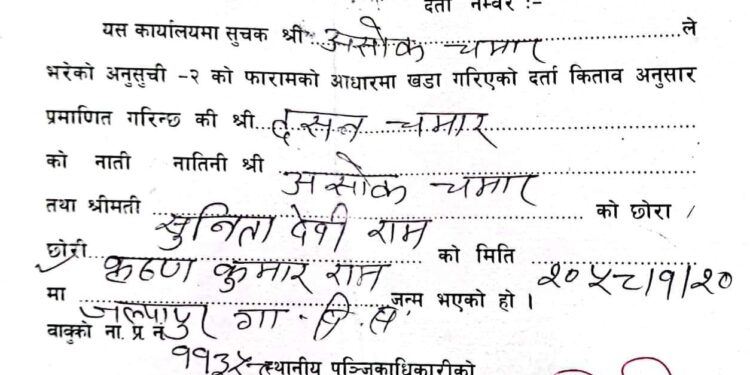 दर्ता नम्बर :-
यस कार्यालयमा सुचक श्री असोक चमार ले
भरेको अनुसुची -२ को फारामको आधारमा खडा गरिएको दर्ता किताव अनुसार
प्रमाणित गरिन्छ की श्री दसन चमार
को नाती नातिनी श्री असोक चमार
तथा श्रीमती सुनिता देवी राम को छोरा /
छोरी कृष्ण कुमार राम को मिति २०५८/१/२०
मा जल्पापुर गा. वि. स. जन्म भएको हो ।
वाबुको ना. प्र. नं.
स्थानीय पञ्जिकाधिकारीको